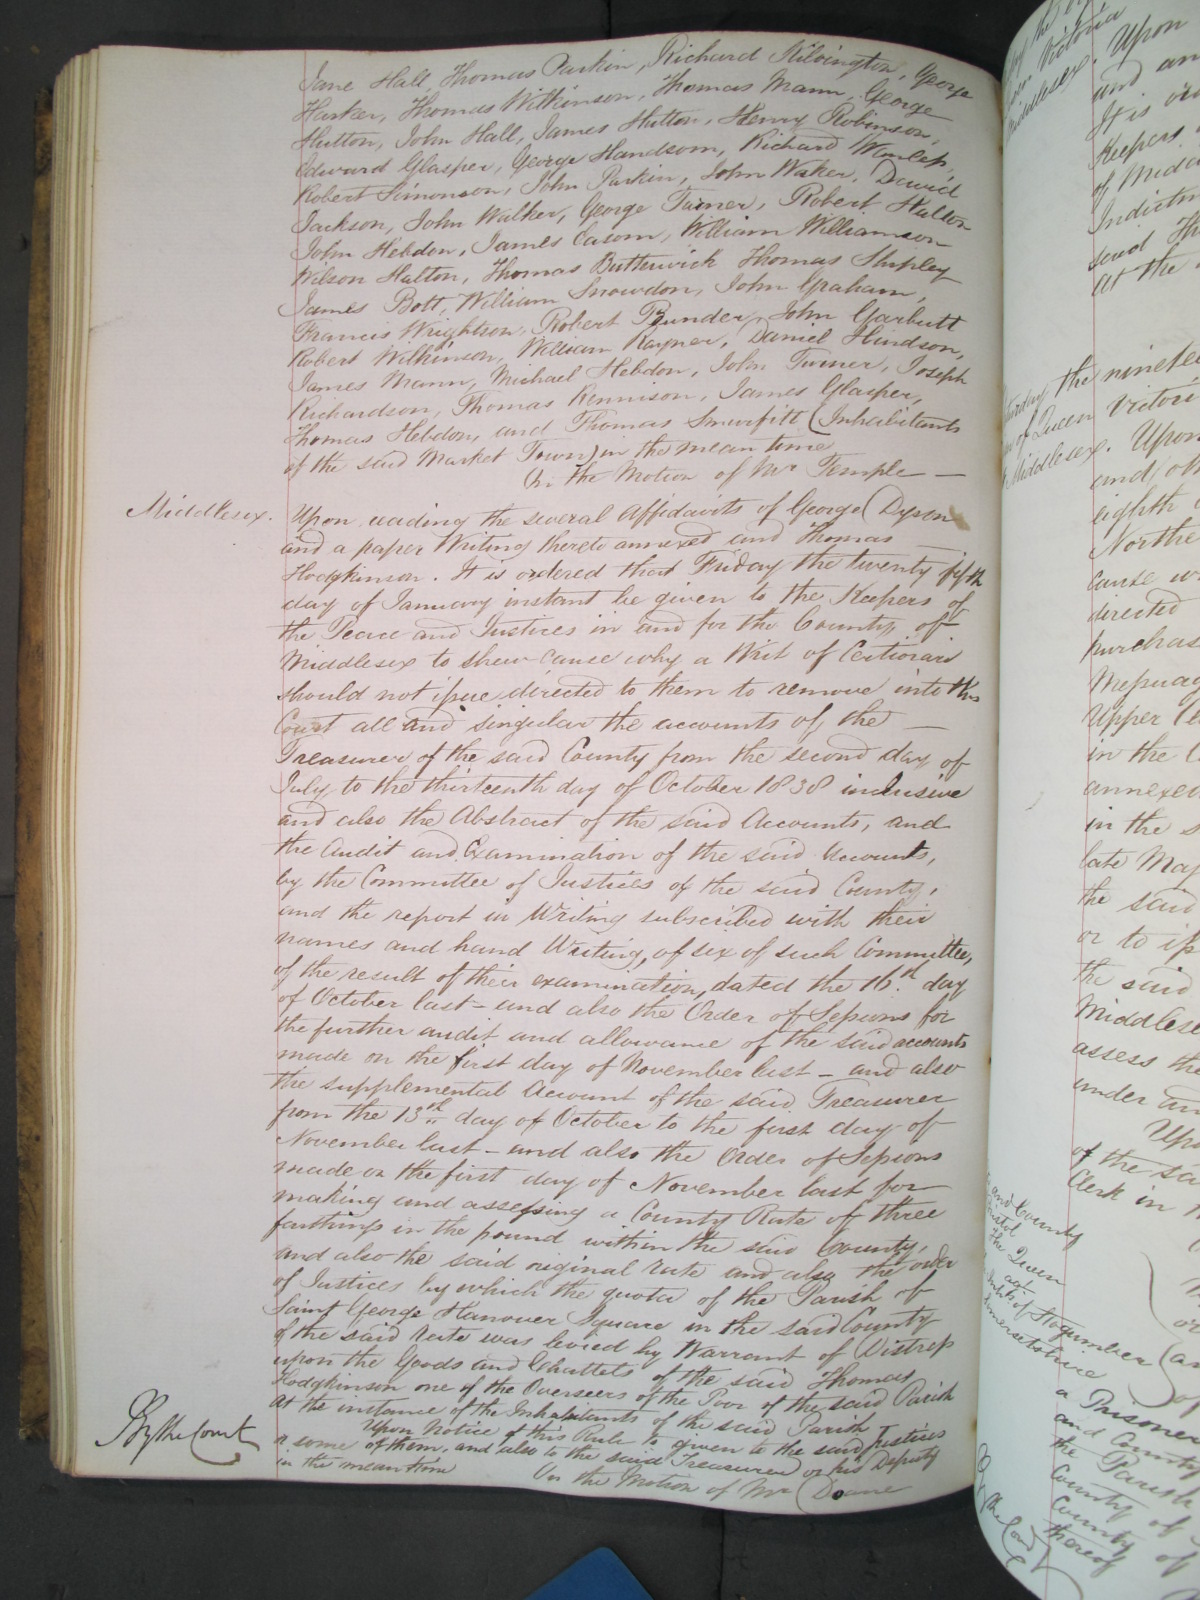 Jane Hall, Thomas Parkin, Richard Kilvington, George
Harker, Thomas Wilkinson, Thomas Mann, George
Hutton, John Hall, James Hutton, Henry Robinson,
Edward Glasper, George Handsom, Richard
Robert Simonson, John Parkin, John Waker, David
Jackson, John Walker, George Turner, Robert Hatton
John Hebdon, James Casom, William Williamson
Wilson Hatton, Thomas Butterwick Thomas Shipley
James Bott, William Snowdon, John Graham,
Francis Wrightson, Robert Pounder, John Garbutt
Robert Wilkinson, William Rayner, Daniel Hindson,
James Mann, Michael Hebdon, John Turner, Joseph
Richardson, Thomas Kennison, James Glasper,
Thomas Hebdon, and Thomas Smurfitt (Inhabitants
of the said Market Town) in the mean time
On the Motion of Mr Temple —
Middlesex.
Upon reading the several Affidavits of George Dyson
and a paper Writing thereto annexed and Thomas
Hodgkinson. It is ordered that Friday the twenty fifth
day of January instant be given to the Keepers of
the Peace and Justices in and for the County of
Middlesex to shew cause why a Writ of Certiorari
should not issue directed to them to remove into this
Court all and singular the accounts of the —
Treasurer of the said County from the second day of
July to the thirteenth day of October 1838 inclusive
and also the Abstract of the said Accounts, and
the Audit and Examination of the said Accounts,
by the Committee of Justices of the said County,
and the report in Writing subscribed with their
names and hand Writing, of six of such Committee,
of the result of their examination, dated the 16th day
of October last – and also the Order of Sessions for
the further audit and allowance of the said accounts
made on the first day of November last – and also
the supplemental Account of the said Treasurer
from the 13th day of October to the first day of
November last – and also the Order of Sessions
made on the first day of November last for
making and assessing a County Rate of three
farthings in the pound within the said County,
and also the said original rate and also the order
of Justices by which the quota of the Parish of
Saint George Hanover Square in the said County
of the said rate was levied by Warrant of Distress
upon the Goods and Chattels of the said Thomas
Hodgkinson one of the Overseers of the Poor of the said Parish
At the instance of the Inhabitants of the said Parish
Upon Notice of this Rule to given to the said Justices
or some of them, and also to the said Treasurer or his Deputy
in the mean time
On the Motion of Mr Doane
By the Court
Upon
and
It is
Keepers
of
said
At the
the
Victoria
Middlesex. Upon
eighth
cause
directed
in the
annexed
in the
late
the said
or to
the said
assess the
under
of the
Clerk in
and County
the Queen
agt
of Stogumber
Somersetshire
a Prisoner
and County
the Parish
County of
County of
thereof
By the Court